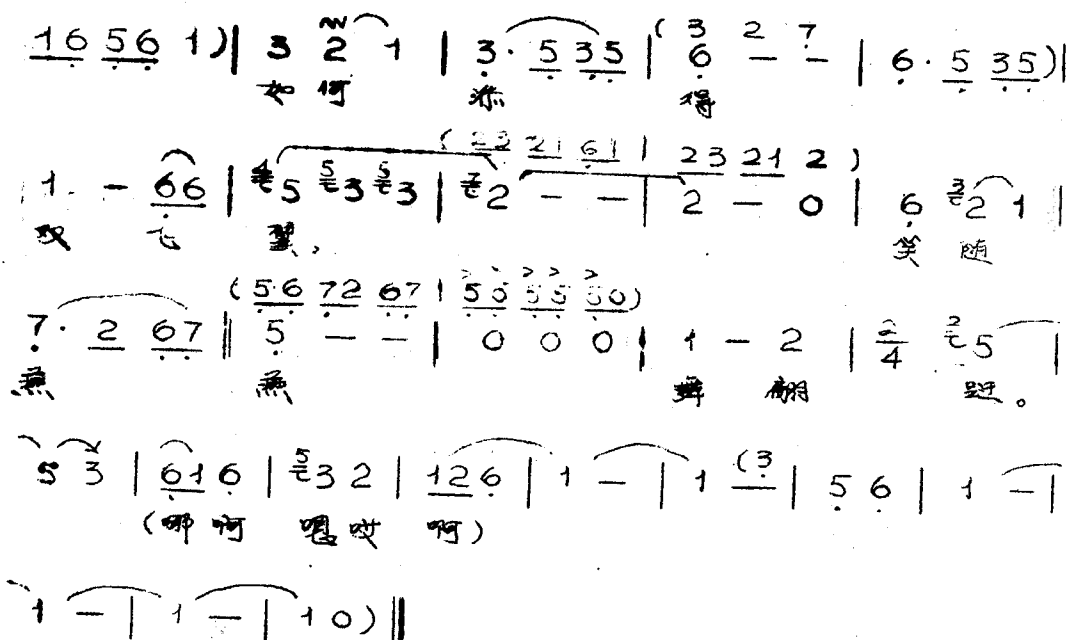 1 6 5 6 1 ) | 3 2 1 | 3 · 5 3 5 | ( 3 2 7 6 — — | 6 · 5 3 5 ) |
如 何 添 得
( 2 2 2 1 6 1 | 2 3 2 1 2 )
1 — 6 6 | 5 5 3 5 3 | 7 2 — — | 2 — 0 | 6 3 2 1 |
双 飞 翼, 笑 随
( 5 · 6 7 2 6 7 | 5 5 5 5 5 0 )
7 · 2 6 7 || 5 — — | 0 0 0 | 1 — 2 | 2/4 2 5 |
燕 燕 舞 翩 跹。
5 3 | 6 1 6 | 5 3 2 | 1 2 6 | 1 — | 1 ( 3 | 5 6 | 1 — |
(哪 啊 嗯 哎 啊)
1 — | 1 — | 1 0 ) ||